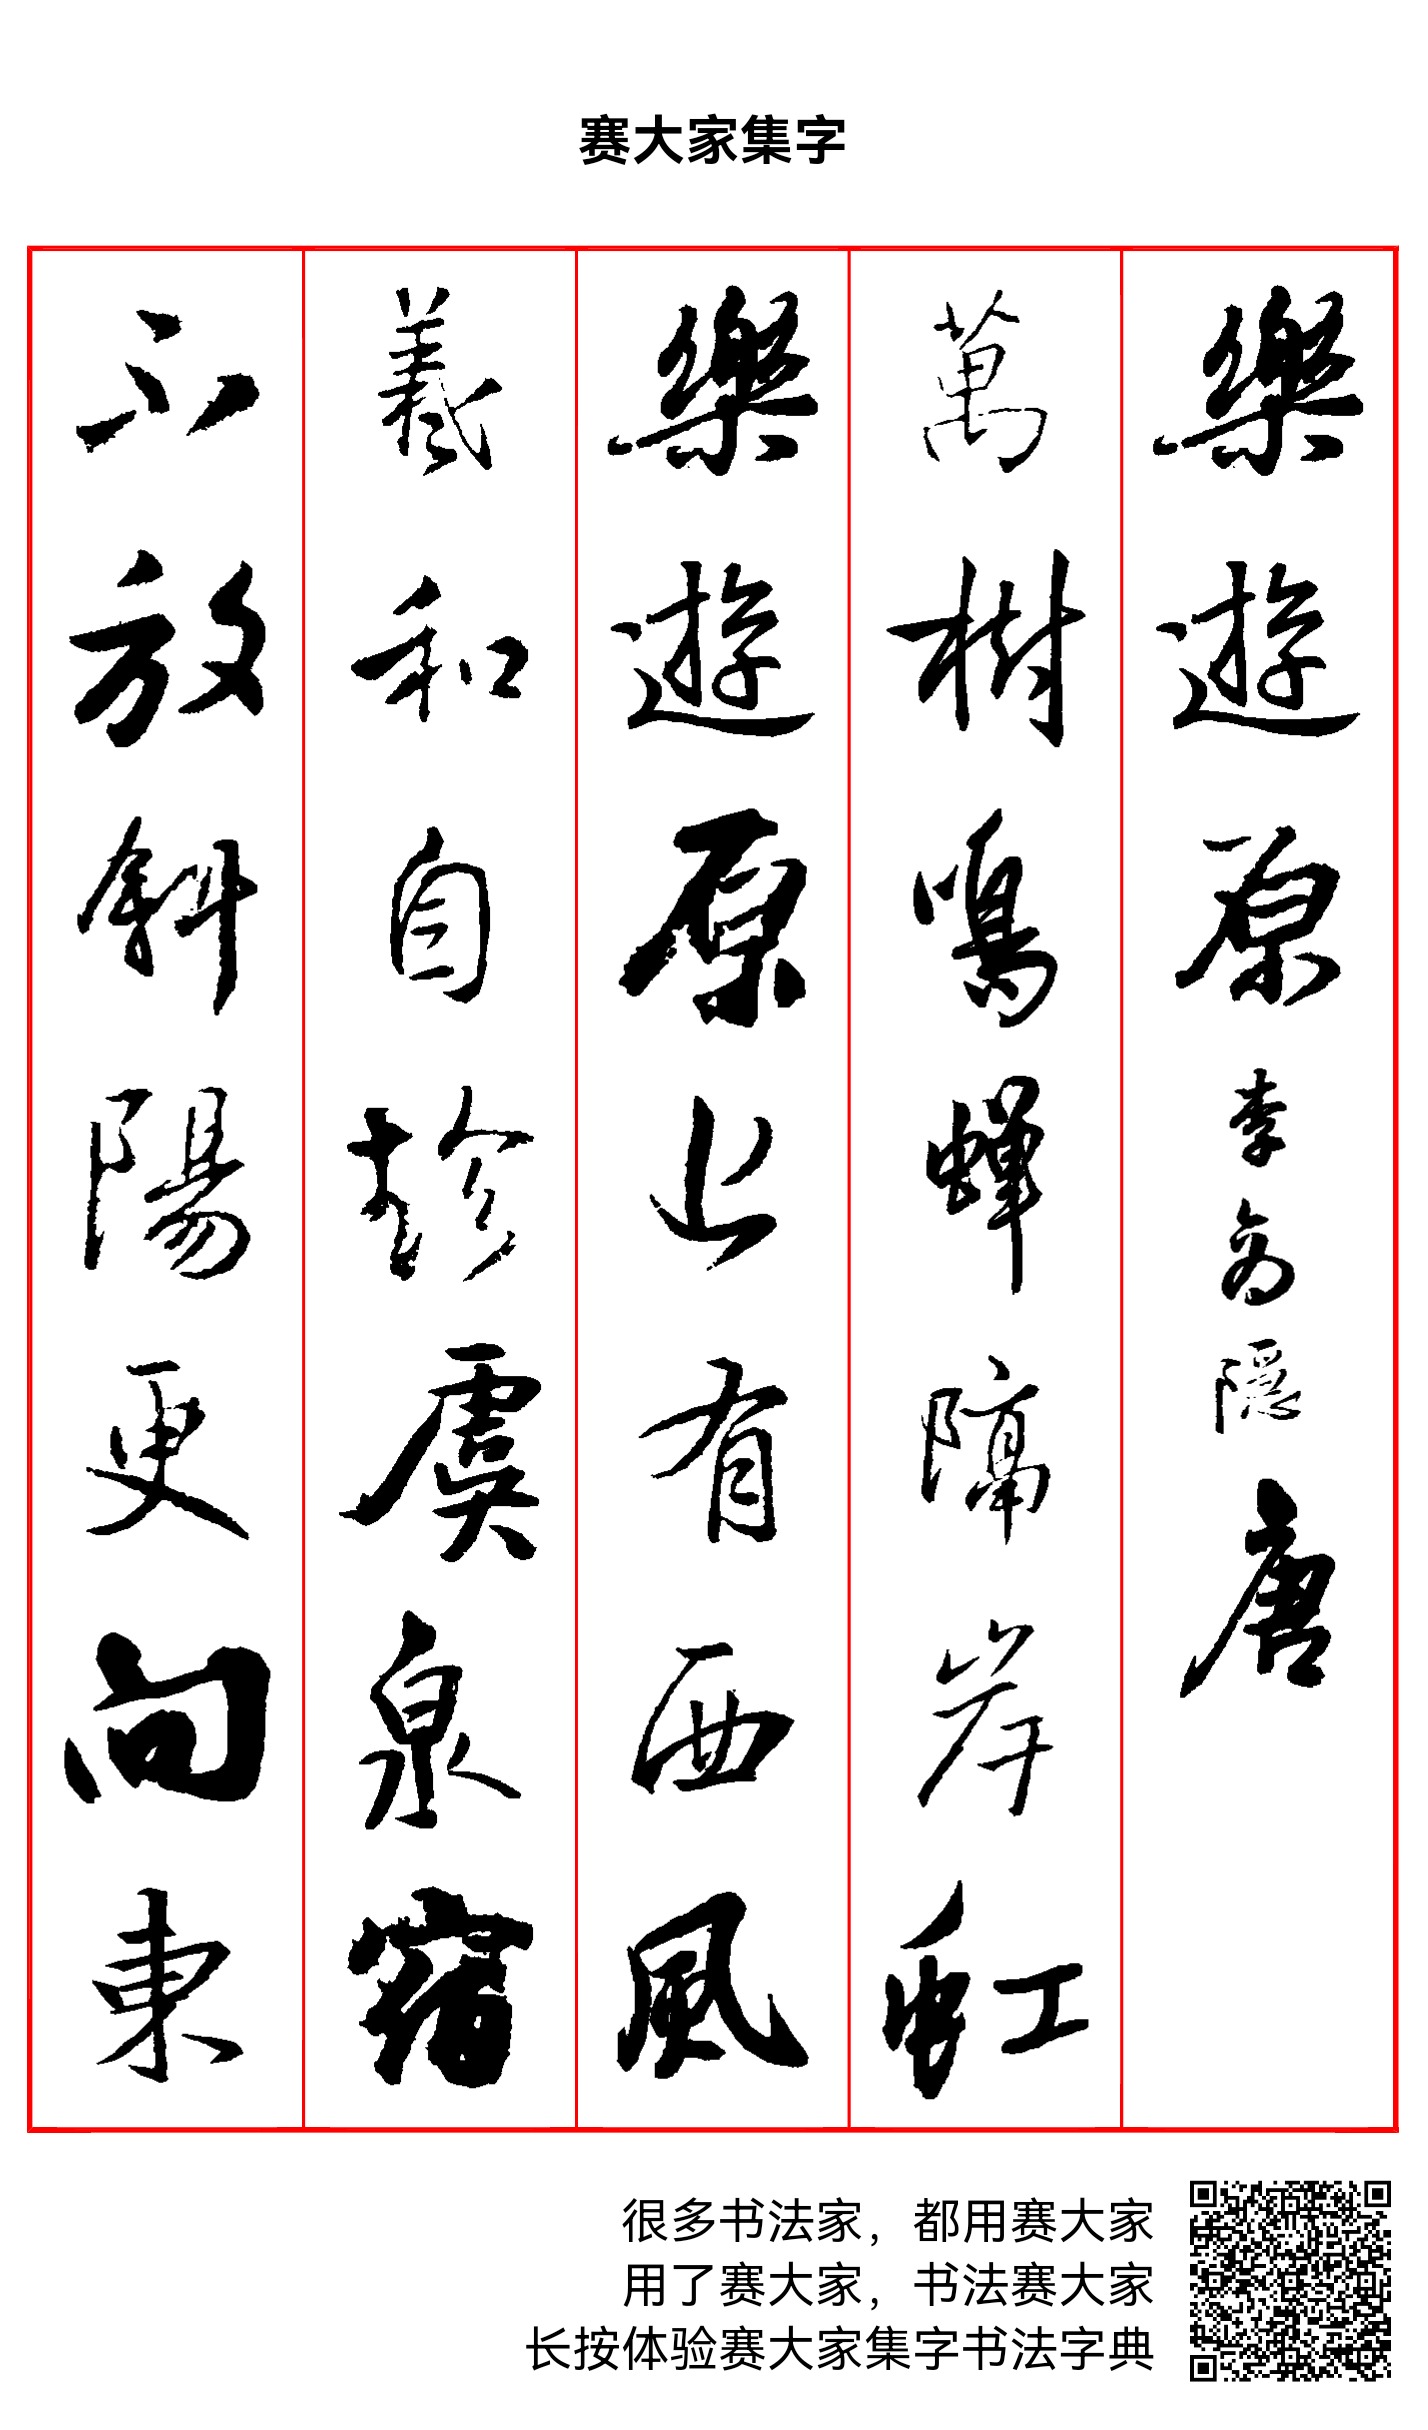 赛大家集字
樂遊原李商隱唐
萬樹鳴蟬隔岸虹
樂遊原上有西風
羲和自趁虞泉宿
不放斜陽更向東
很多书法家，都用赛大家
用了赛大家，书法赛大家
长按体验赛大家集字书法字典